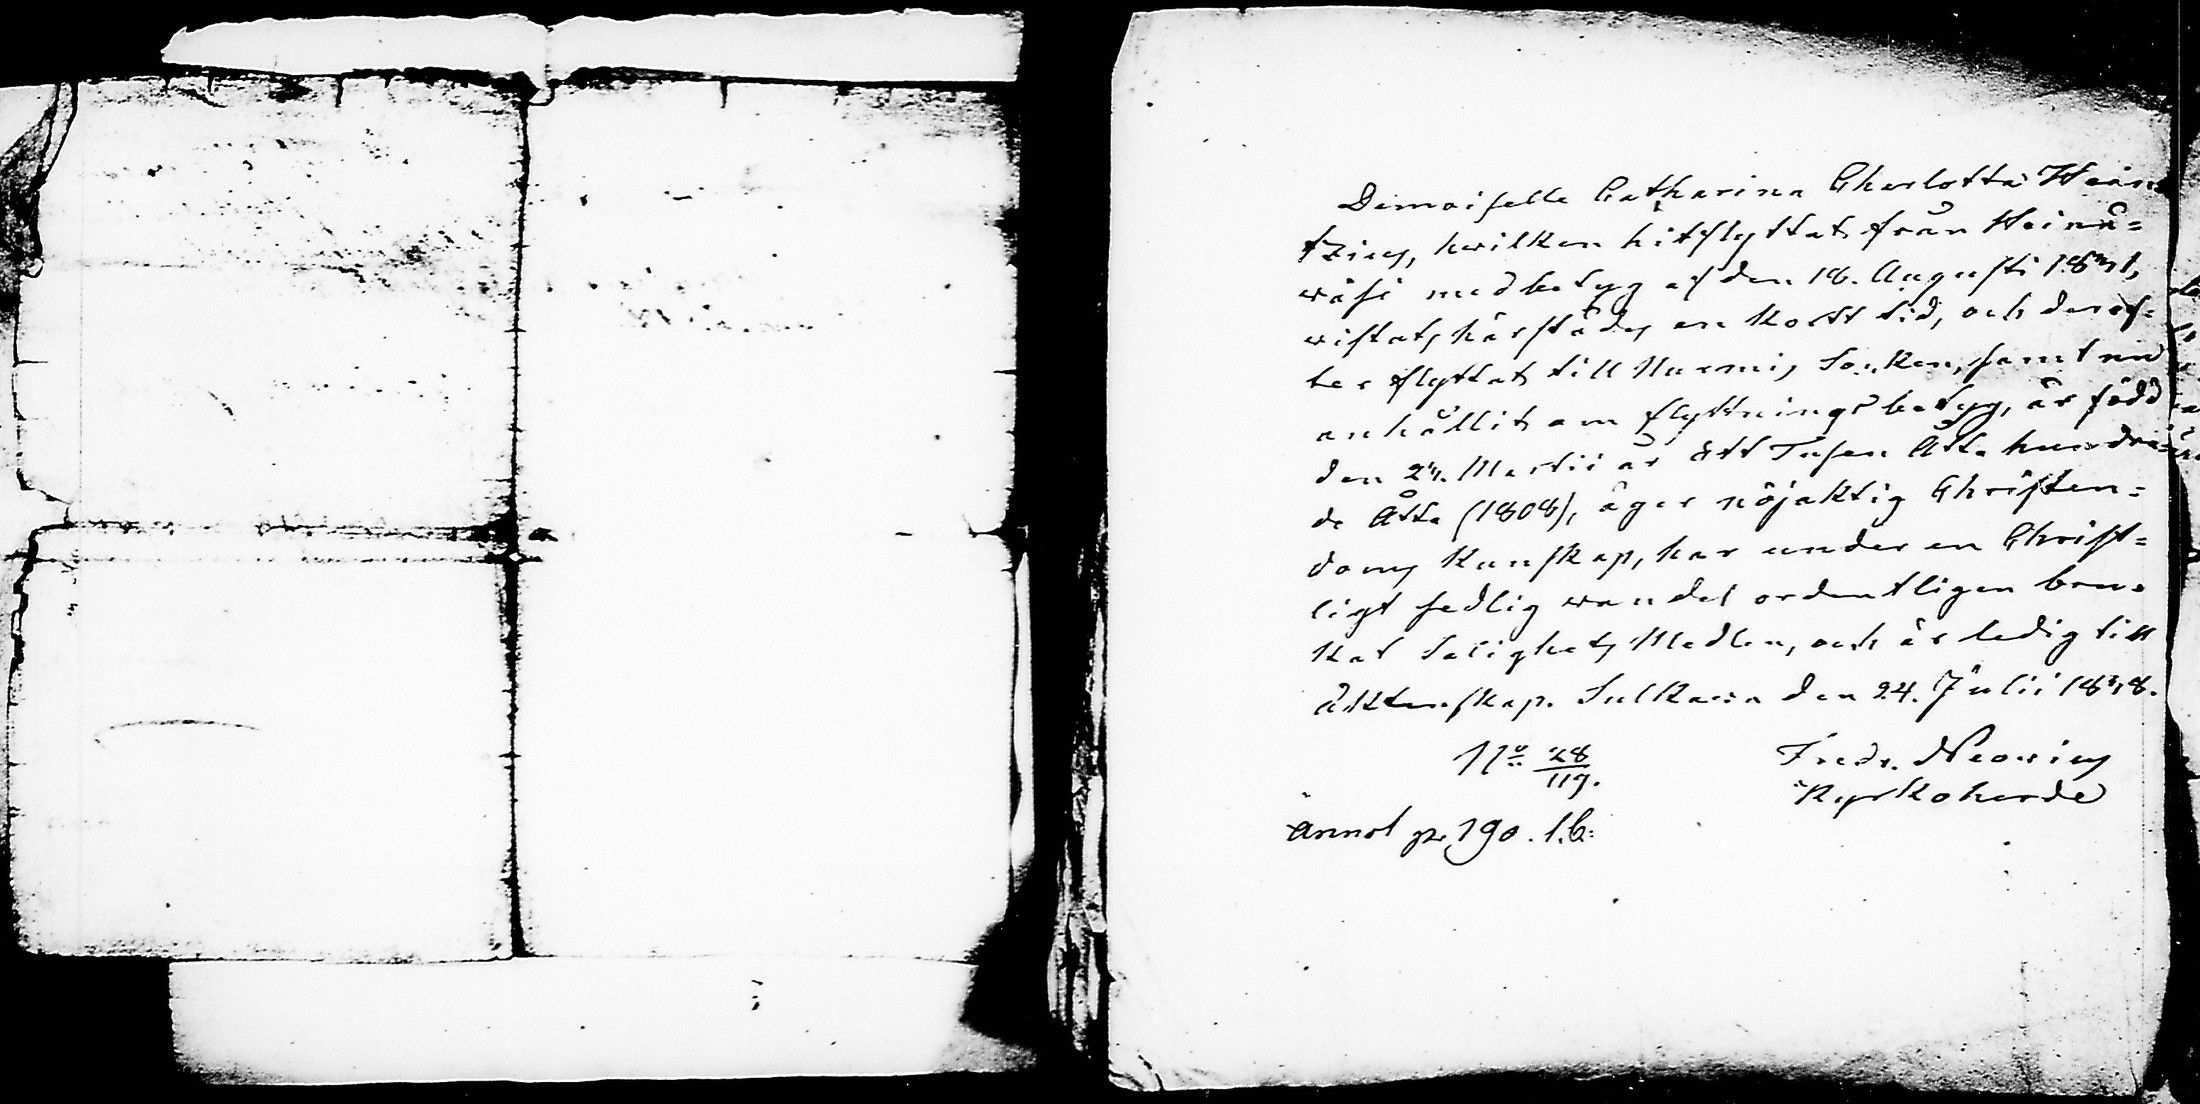 Demoiselle Catharina Charlotta Hein
tzius, hwilken hitflyttat från Heinä=
wäsi med betyg af den 18. Augusti
wistats härstädes en kort tid, och deref=
ter flyttat till Nurmis Socken, samt nu
anhållit om flyttningsbetyg, är född
den Martii år Ett Tusen Åtta hundra=
de Åtta (1808), äger nöjaktig Christen=
doms Kunskap, har under en Christ=
ligt sedlig wandel ordentligen bru=
kat Salighets Medlen, och är ledig till
Äktenskap. Sulkawa den 24. Julii
N:o 28/119.
Fredr. Neovius
Kyrkoherde
Annot p. 190. l.b: